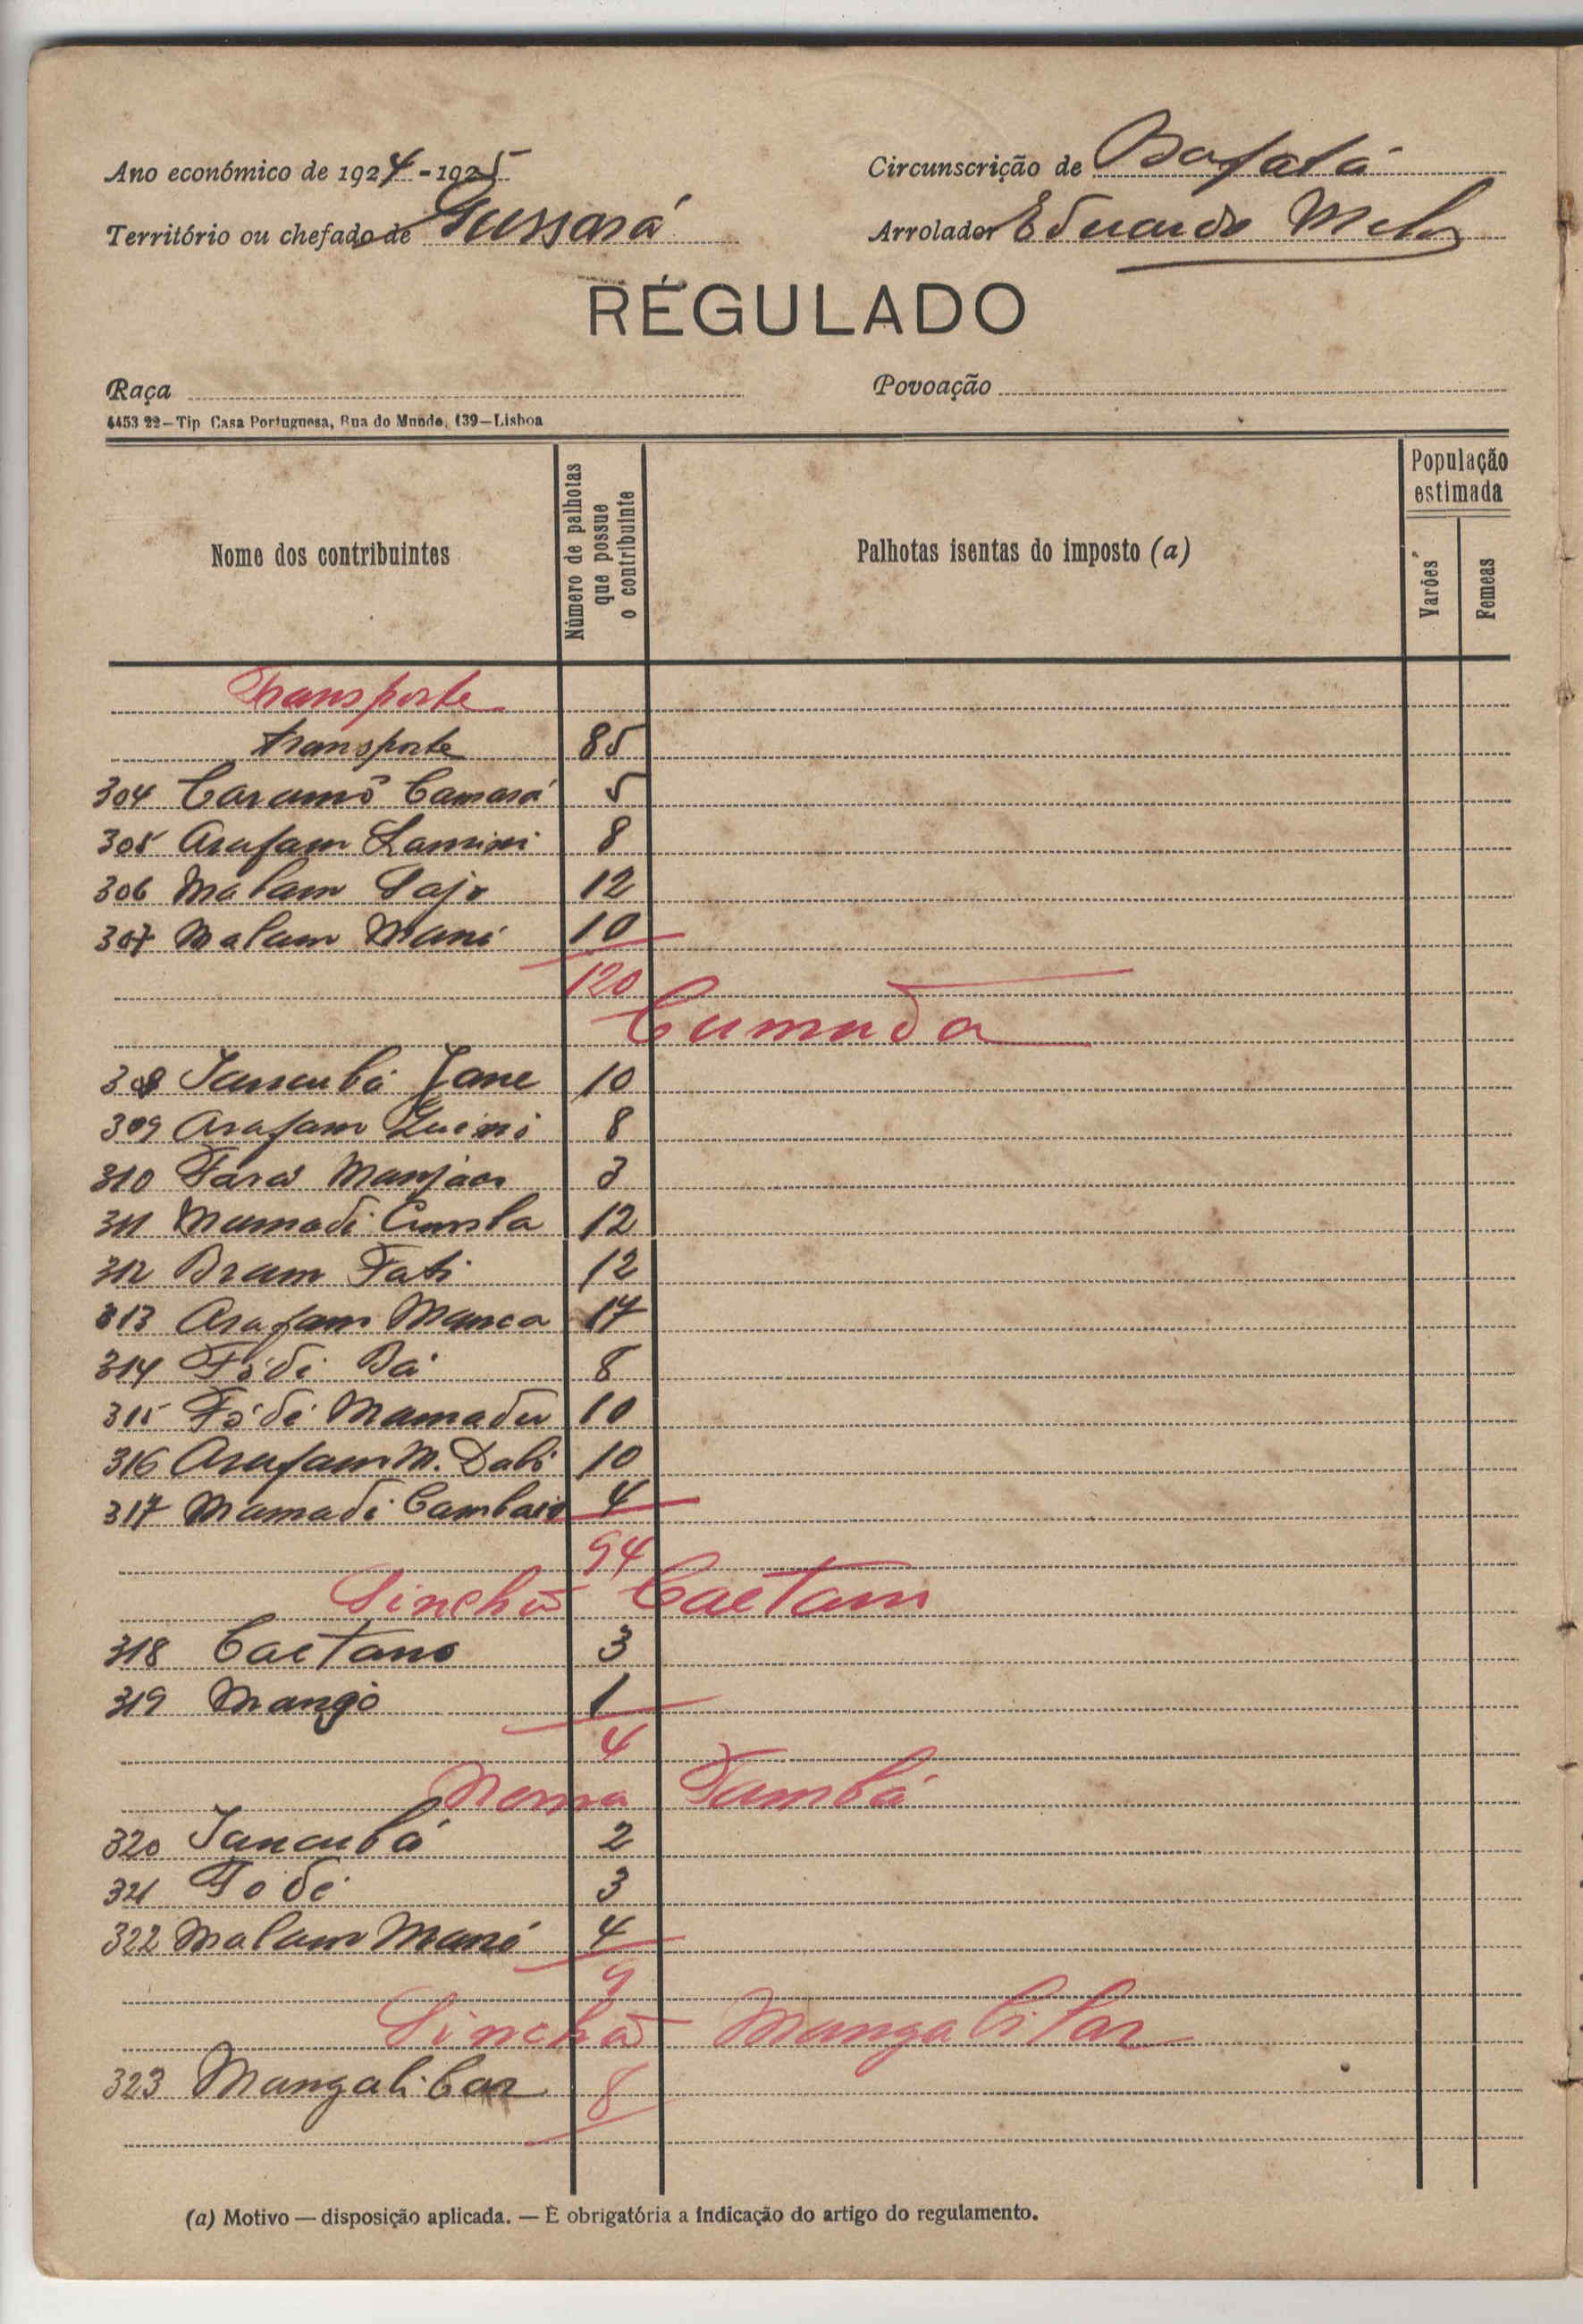 Ano económico de 1924-1925
Circunscrição de Bafatá
Território ou chefado de Gussará
Arrolador Eduardo Melo
RÉGULADO
Raça
Povoação
4453 22—Tip Casa Portuguesa, Rua do Mundo, 139—Lisboa
Nome dos contribuintes
Número de palhotas que possue o contribuinte
Palhotas isentas do imposto (a)
População estimada
Varões
Femeas
Transporte
Transporte 85
304 Caramô Camará 5
305 Arafam Lamini 8
306 Malam Sajo 12
307 Malam Mané 10
120
Cumuda
308 Jancubá Jane 10
309 Arafam 8
310 Fara Manjaco 3
311 Mamadi 12
312 Bram Fati 12
313 Arafam Manca 17
314 Fódé Bá 8
315 Fódé Mamadu 10
316 Arafam M. Dabó 10
317 Mamadi Cambaio 4
94
Sinchã Caetano
318 Caetano 3
319 Mangó 1
4
Nema Tambá
320 Jancubá 2
321 Fodé 3
322 Malam Mané 4
9
Sinchã Mangalibar
323 Mangalibar 8
(a) Motivo — disposição aplicada. — É obrigatória a indicação do artigo do regulamento.